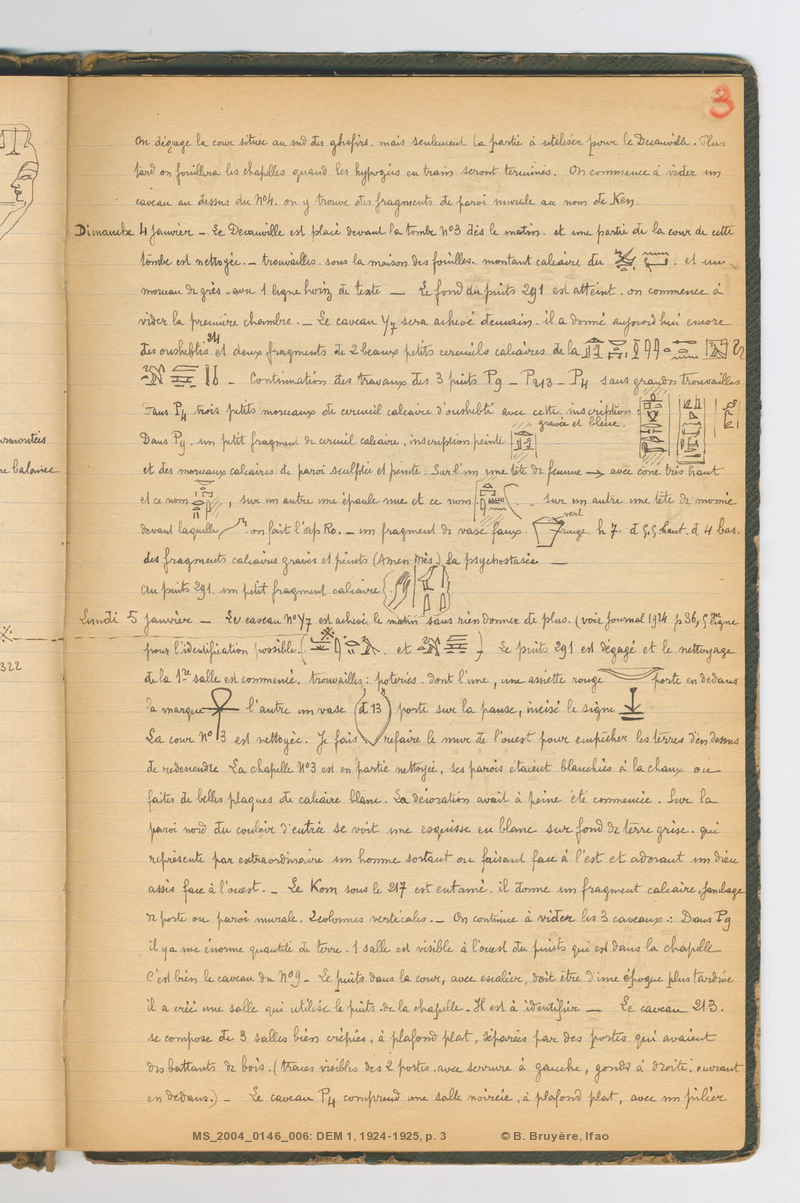 3
On dégage la cour située au sud des ghafirs. mais seulement la partie à utiliser pour le Decauville. Plus
tard on fouillera les chapelles quand les hypogées en train seront terminés. On commence à vider un
caveau au dessus du N°4. on y trouve des fragments de paroi murale au nom de Ken.
Dimanche 4 Janvier – Le Decauville est placé devant la tombe N°3 dès le matin. et une partie de la cour de cette
tombe est nettoyée. – trouvailles sous la maison des fouilles. montant calcaire du et un
morceau de grès avec 1 ligne horiz de texte — Le fond du puits 291 est atteint. on commence à
vider la première chambre. – Le caveau Y7 sera achevé demain. il a donné aujourd'hui encore
des oushebtis et deux fragments de 2 beaux petits cercueils calcaires de la
– Continuation des travaux des 3 puits P9 – P213 – P4 sans grandes trouvailles
Dans P4 trois petits morceaux de cercueil calcaire d'oushebti avec cette inscription :
gravée et bleue.
Dans P9. un petit fragment de cercueil calcaire, inscription peinte
et des morceaux calcaires de paroi sculptée et peinte. Sur l'un une tête de femme → avec cône très haut
et ce nom , sur un autre une épaule nue et ce nom sur un autre une tête de momie
devant laquelle on fait l'ap Ro. – un fragment de vase faux. vert rouge. h 7. d 5,5 haut. d 4 bas.
des fragments calcaires gravés et peints (Amen Mès.) La psychostasie —
Au puits 291. un petit fragment calcaire
Lundi 5 Janvier – Le caveau N° Y7 est achevé le matin sans rien donner de plus. (voir Journal 1924 p 36, 5me ligne
pour l'identification possible. ( et ) Le puits 291 est dégagé et le nettoyage
de la 1re salle est commencé. trouvailles : poteries. dont l'une, une assiette rouge porte en dedans
la marque l'autre un vase (d 13) porte sur la panse, incisé le signe
La cour N° 3 est nettoyée. Je fais refaire le mur de l'ouest pour empêcher les terres d'en dessus
de redescendre La chapelle N°3 est en partie nettoyée, ses parois étaient blanchies à la chaux ou
faites de belles plaques de calcaire blanc. La décoration avait à peine été commencée. Sur la
paroi nord du couloir d'entrée se voit une esquisse en blanc sur fond de terre grise. qui
représente par extraordinaire un homme sortant ou faisant face à l'est et adorant un dieu
assis face à l'ouest. – Le Kom sous le 217 est entamé. il donne un fragment calcaire, jambage
de porte ou paroi murale. 2 colonnes verticales. – On continue à vider les 3 caveaux : Dans P9
il y a une énorme quantité de terre. 1 salle est visible à l'ouest du puits qui est dans la chapelle
C'est bien le caveau du N°9 – Le puits dans la cour, avec escalier, doit être d'une époque plus tardive
il a créé une salle qui utilise le puits de la chapelle. Il est à identifier — Le caveau 213.
se compose de 3 salles bien crépies, à plafond plat, séparées par des portes qui avaient
des battants de bois. (traces visibles des 2 portes avec serrure à gauche, gonds à droite, ouvrant
en dedans.) – Le caveau P4 comprend une salle noircie, à plafond plat, avec un pilier
MS_2004_0146_006: DEM 1, 1924-1925, p. 3 © B. Bruyère, Ifao